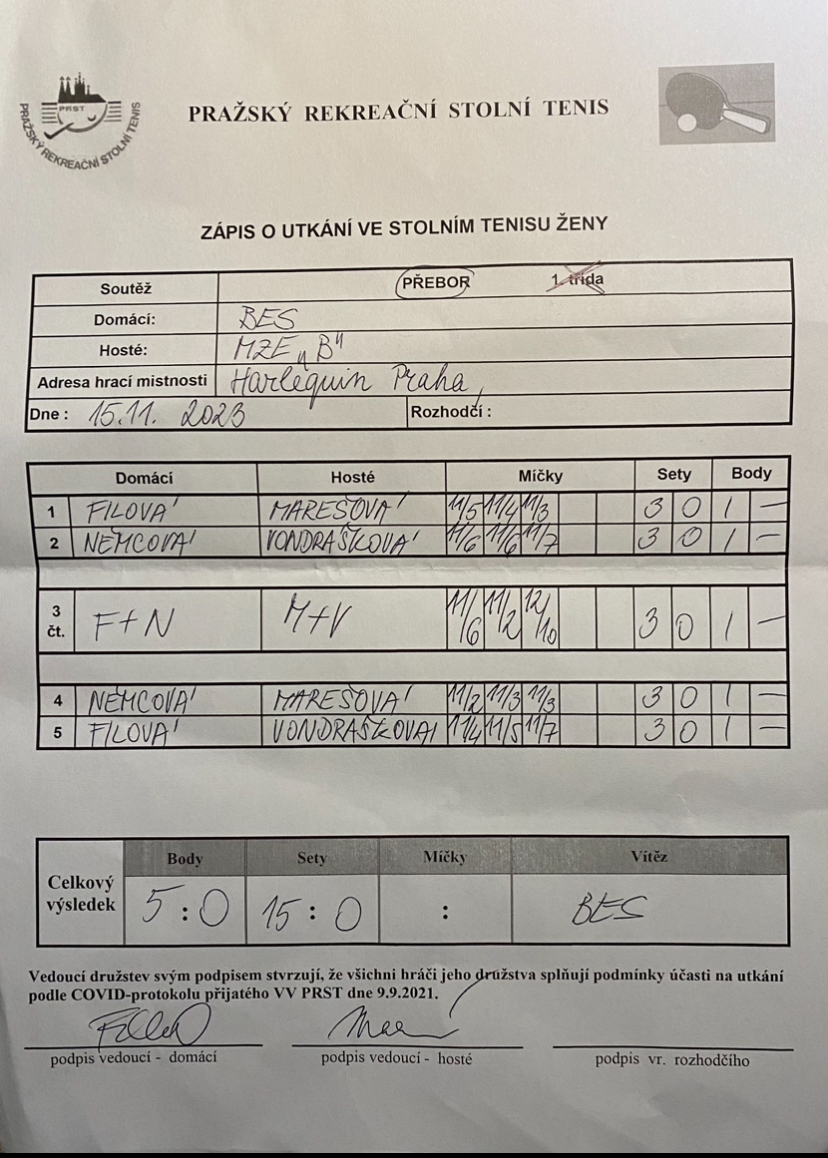 PRST
PRAŽSKÝ REKREAČNÍ STOLNÍ TENIS
PRAŽSKÝ REKREAČNÍ STOLNÍ TENIS
ZÁPIS O UTKÁNÍ VE STOLNÍM TENISU ŽENY
Soutěž PŘEBOR 1. třída
Domácí: BES
Hosté: MZE „B"
Adresa hrací mistnosti Harlequin Praha
Dne : 15.11. 2023 Rozhodčí :
Domácí Hosté Míčky Sety Body
1 FILOVÁ MAREŠOVÁ 11/5 11/4 11/3 3 0 1 –
2 NĚMCOVÁ VONDRAŠKOVÁ 11/6 11/6 11/7 3 0 1 –
3 čt. F+N M+V 11/6 11/2 12/10 3 0 1 –
4 NĚMCOVÁ MAREŠOVÁ 11/2 11/3 11/3 3 0 1 –
5 FILOVÁ VONDRAŠKOVÁ 11/4 11/5 11/7 3 0 1 –
Body Sety Míčky Vítěz
Celkový výsledek 5 : 0 15 : 0 : BES
Vedoucí družstev svým podpisem stvrzují, že všichni hráči jeho družstva splňují podmínky účasti na utkání
podle COVID-protokolu přijatého VV PRST dne 9.9.2021.
podpis vedoucí - domácí podpis vedoucí - hosté podpis vr. rozhodčího